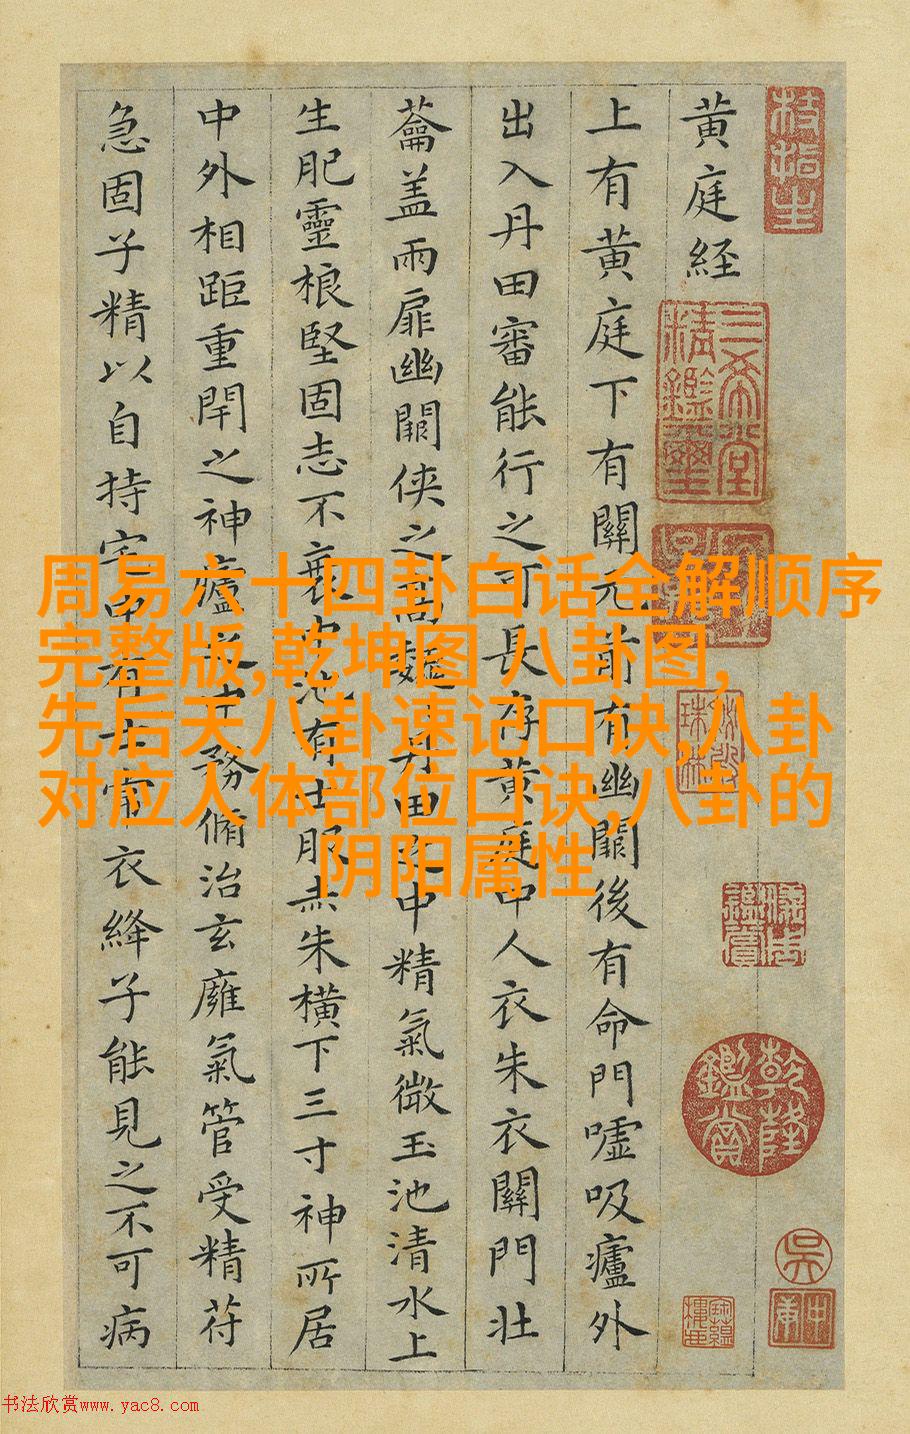 黄庭経
上有黄庭下有關元前有幽闕後有命門噓吸廬外
出入丹田審能行之可長存黄庭中人衣朱衣關門壮
蘥盖兩扉幽闕侠之高巍丹田之中精氣微玉池清水上
生肥靈根堅固志不衰中池有士服赤朱横下三寸神所居
中外相距重閇之神廬之中務脩治玄廱氣管受精苻
急固子精以自持宅中有士常衣絳子能見之不可病
三希堂精鑑璽
乾隆鑑賞
周易六十四卦白话全解顺序
完整版,乾坤图 八卦图,
先后天八卦速记口诀,八卦
对应人体部位口诀,八卦的
阴阳属性
书法欣赏www.yac8.com